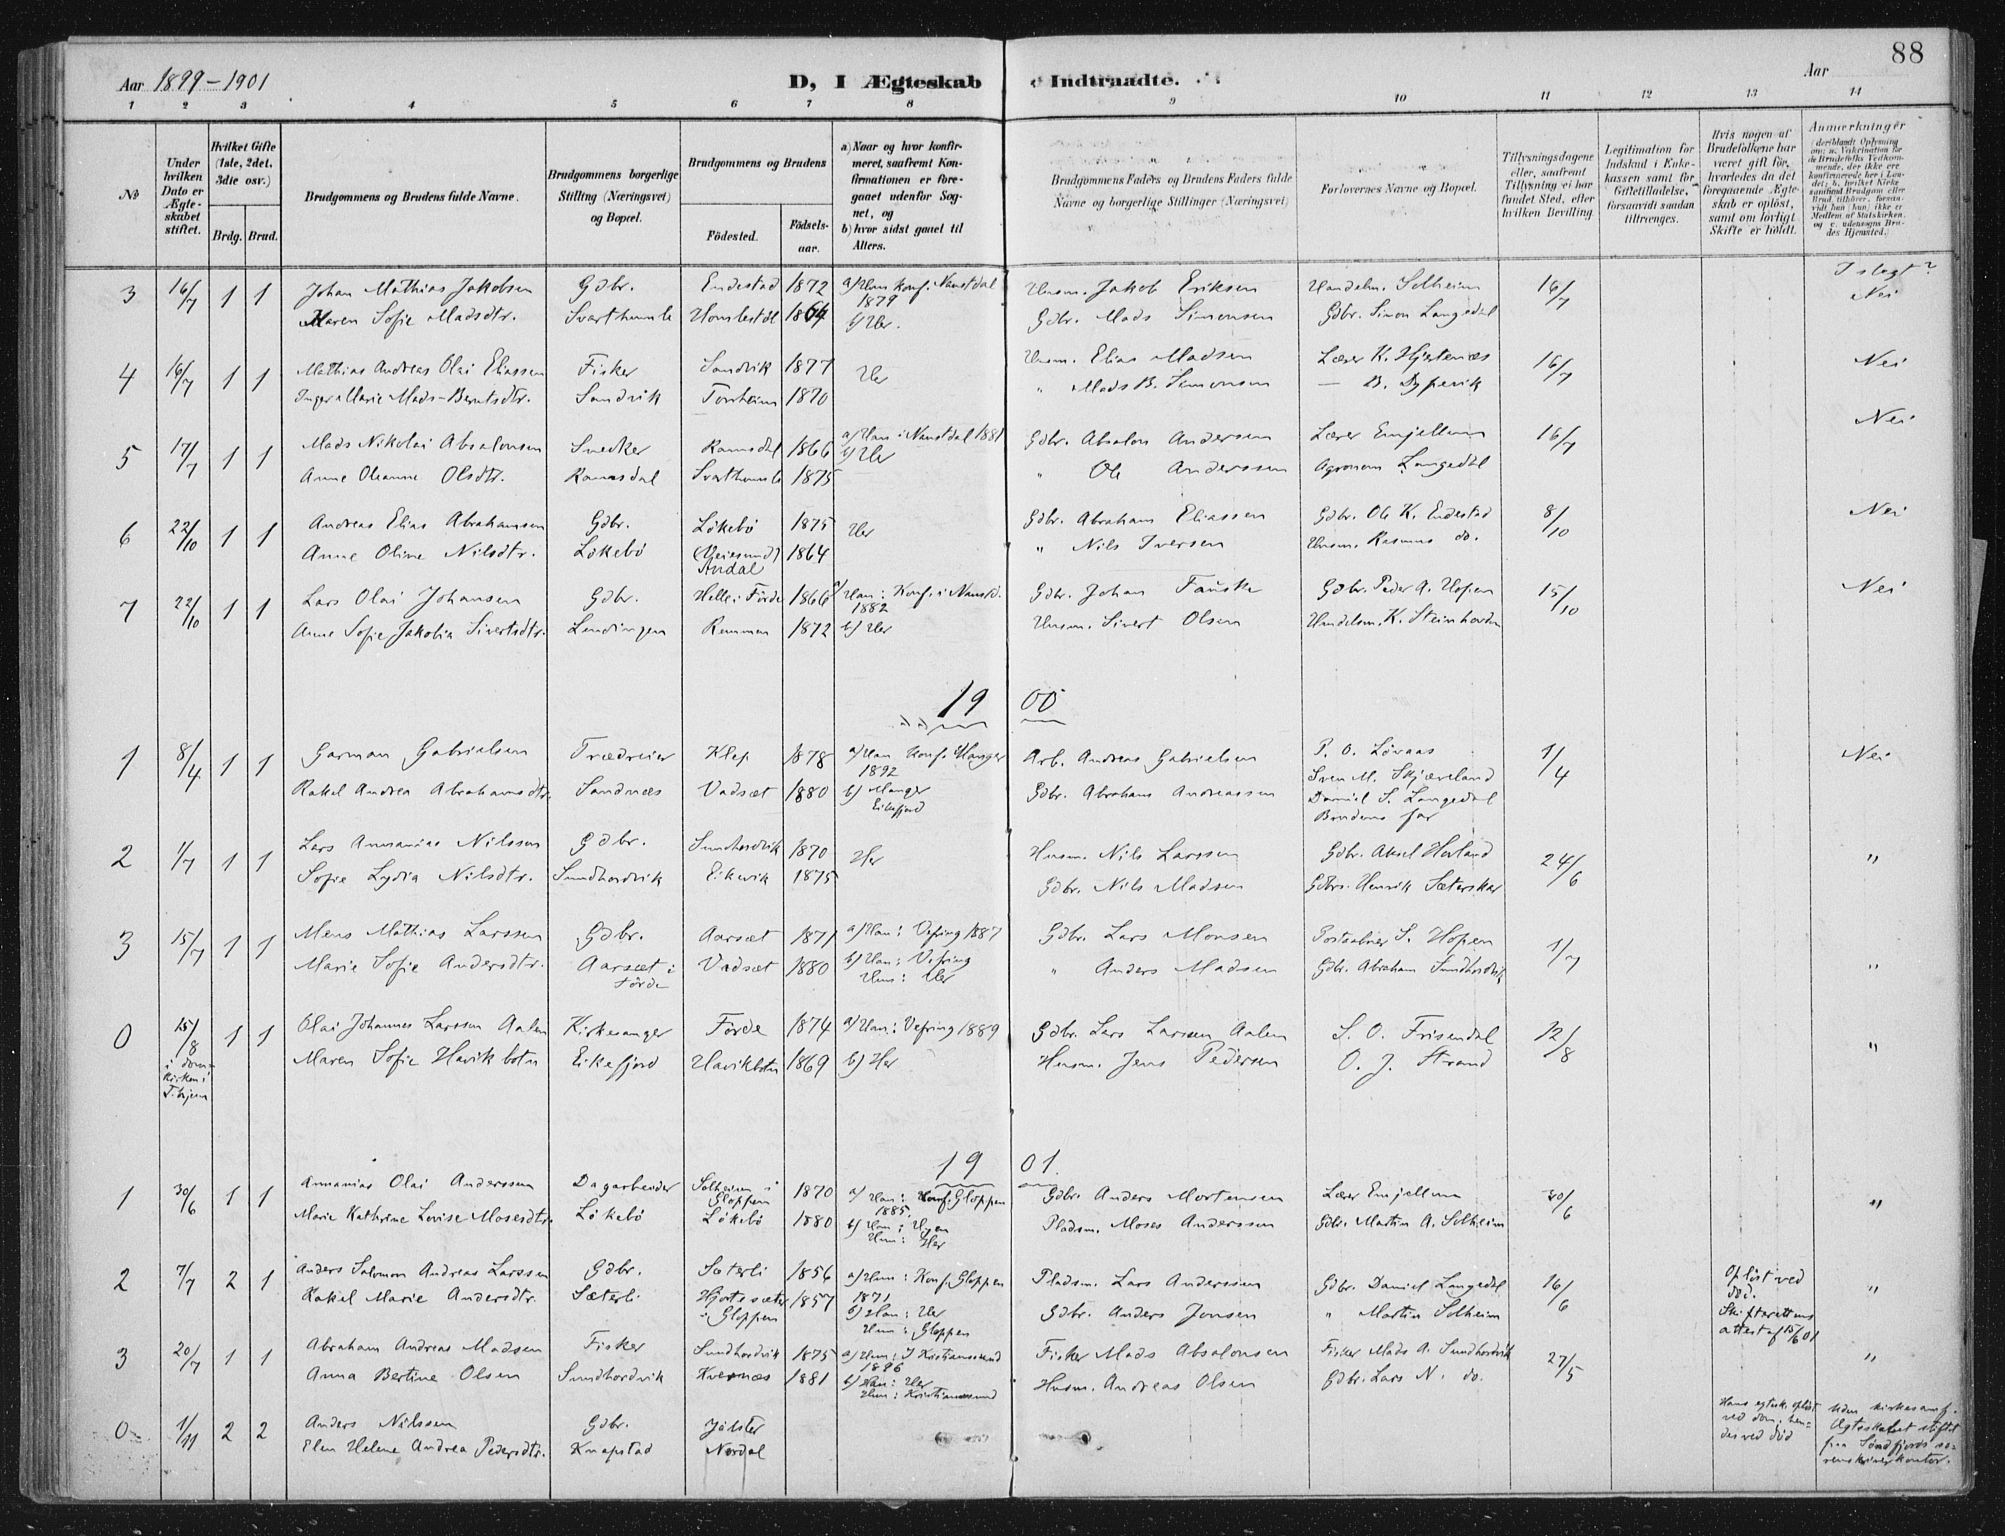 88
Aar 1899-1901
D, I Ægteskab Indtraadte.
Aar
1 2 3 4 5 6 7 8 9 10 11 12 13 14
No
Under hvilken Dato er Ægteskabet stiftet.
Hvilket Gifte (1ste, 2det, 3die osv.)
Brdg. Brud.
Brudgommens og Brudens fulde Navne.
Brudgommens borgerlige Stilling (Næringsvei) og Bopæl.
Brudgommens og Brudens
Födested.
Födsels-aar.
a) Naar og hvor konfirmeret, saafremt Konfirmationen er foregaaet udenfor Sognet, og
b) hvor sidst gaaet til Alters.
Brudgommens Faders og Brudens Faders fulde Navne og borgerlige Stillinger (Næringsvei)
Forlovernes Navne og Bopæl.
Tillysningsdagene eller, saafremt Tillysning ei har fundet Sted, efter hvilken Bevilling.
Legitimation for Indskud i Enkekassen samt for Giftetilladelse, forsaavidt saadan tiltrænges.
Hvis nogen af Brudefolkene har været gift för, hvorledes da det foregaaende Ægteskab er oplöst, samt om lovligt Skifte er holdt.
Anmærkninger
3 16/7 1 1 Johan Mathias Jakobsen Gdbr. Endestad 1872 a) Hun Konf. i Naustdal 1879 Husm. Jakob Eriksen Handelm. Solheim 16/7 I slegt? Nei
Maren Sofie Madsdtr. Svarthumle 1864 b) Her. Gdbr. Mads Simonsen Gdbr. Simon Langedal
4 16/7 1 1 Mathias Andreas Olai Eliassen Fisker Sandvik 1877 Her Husm. Elias Madsen Lærer K. Hjertenæs 16/7 Nei
Inger Marie Mads-Berntsdtr. Sandvik Torsheim 1870 " Mads B. Simonsen — B. Dypevik
5 17/7 1 1 Mads Nikolai Absalonsen Snedker Ramsdal 1866 a) Han i Naustdal 1881 b) Her Gdbr. Absalon Andersen Lærer Emjellem 16/7 Nei
Anne Oleanne Olsdtr. Ramsdal Svarthumle 1875 " Ole Anderssen Agronom Langedal
6 22/10 1 1 Andreas Elias Abrahamsen Gdbr. Løkebø 1875 Her Gdbr. Abraham Eliassen Gdbr. Ole K. Endestad 8/10 Nei
Anne Oline Nilsdtr. Løkebø Andal 1864 " Nils Iversen Husm. Rasmus do.
7 22/10 1 1 Lars Olai Johansen Gdbr. Helle i Førde 1866 a) Han: Konf. i Naustd. 1882 Gdbr. Johan Fauske Gdbr. Peder A. Hopen 15/10 Nei
Anne Sofie Jakobia Sivertsdtr. Lendingen Remmen 1872 b) Her Husm. Sivert Olsen Handelsm. K. Steinhovden
19 00
1 8/4 1 1 Garman Gabrielsen Trædreier Klep 1878 a) Han Konf. Manger 1892 Arb. Andreas Gabrielsen P. O. Løvaas 1/4 Nei
Sven M. Skjæveland
Rakel Andrea Abrahamsdtr. Sandnæs Vadsæt 1880 b) Manger Eikefjord Gdbr. Abraham Andreassen Daniel S. Langedal
Brudens far
2 1/7 1 1 Lars Annanias Nilssen Gdbr. Sundhordvik 1870 Her Husm. Nils Larssen Gdbr. Aksel Hovland 24/6 "
Sofie Lydia Nilsdtr. Sundhordvik Eikevik 1875 Gdbr. Nils Madsen Gdbr. Henrik Sæterskar
3 15/7 1 1 Mons Mathias Larssen Gdbr. Aarsæt 1871 a) Han: Vefring 1887 Gdbr. Lars Monsen Postaabner S. Hopen 1/7 "
Marie Sofie Andersdtr. Aarsæt i Førde Vadsæt 1880 b) Han: Vefring Hun: Her " Anders Madsen Gdbr. Abraham Sundhordvik
0 15/8 i domkirken i T.hjem 1 1 Olai Johannes Larssen Aalen Kirkesanger Førde 1874 a) Han: Vefring 1889 Gdbr. Lars Larssen Aalen S. O. Frisendal 12/8 "
Maren Sofie Havikbotn Eikefjord Havikbotn 1869 b) Her Husm. Jens Pedersen O. J. Strand
19 01
1 30/6 1 1 Annanias Olai Anderssen Dagarbeider Solheim i Gloppen 1870 a) Han: Konf. Gloppen 1885. Gdbr. Anders Mortensen Lærer Emjellem 30/6 "
Marie Kathrine Lovise Mosesdtr. Løkebø Løkebø 1880 b) Han: Hun: Her Pladsm. Moses Anderssen Gdbr. Martin A. Solheim
2 7/7 2 1 Anders Salomon Andreas Larssen Gdbr. Sæterli 1856 a) Hun: Konf. Gloppen 1871 Pladsm. Lars Anderssen Gdbr. Daniel Langedal 16/6 Opløst ved død. Skifterettens attest af 15/6 01 "
Rakel Marie Andersdtr. Sæterli Hjortesæter i Gloppen 1857 b) Han: Her Hun: Gloppen Gdbr. Anders Jonsen " Martin Solheim
3 20/7 1 1 Abraham Andreas Madsen Fisker Sundhordvik 1875 a) Hun: I Kristianssund 1896 Fisker Mads Absalonsen Fisker Mads A. Sundhordvik 27/5 "
Anna Bertine Olsen Sundhordvik Kvernæs 1881 b) Han: Her Hun: Kristianssund Husm. Andreas Olsen Gdbr. Lars N. do.
0 1/11 2 2 Anders Nilssen Gdbr. Jølster Hans egtesk. opløst ved dom, hendes ved død Uden kirkesamf. Ægteskabet stiftet paa Søndfjords sorenskriverkontor.
Elen Helene Andrea Pedersdtr. Knapstad Nordal